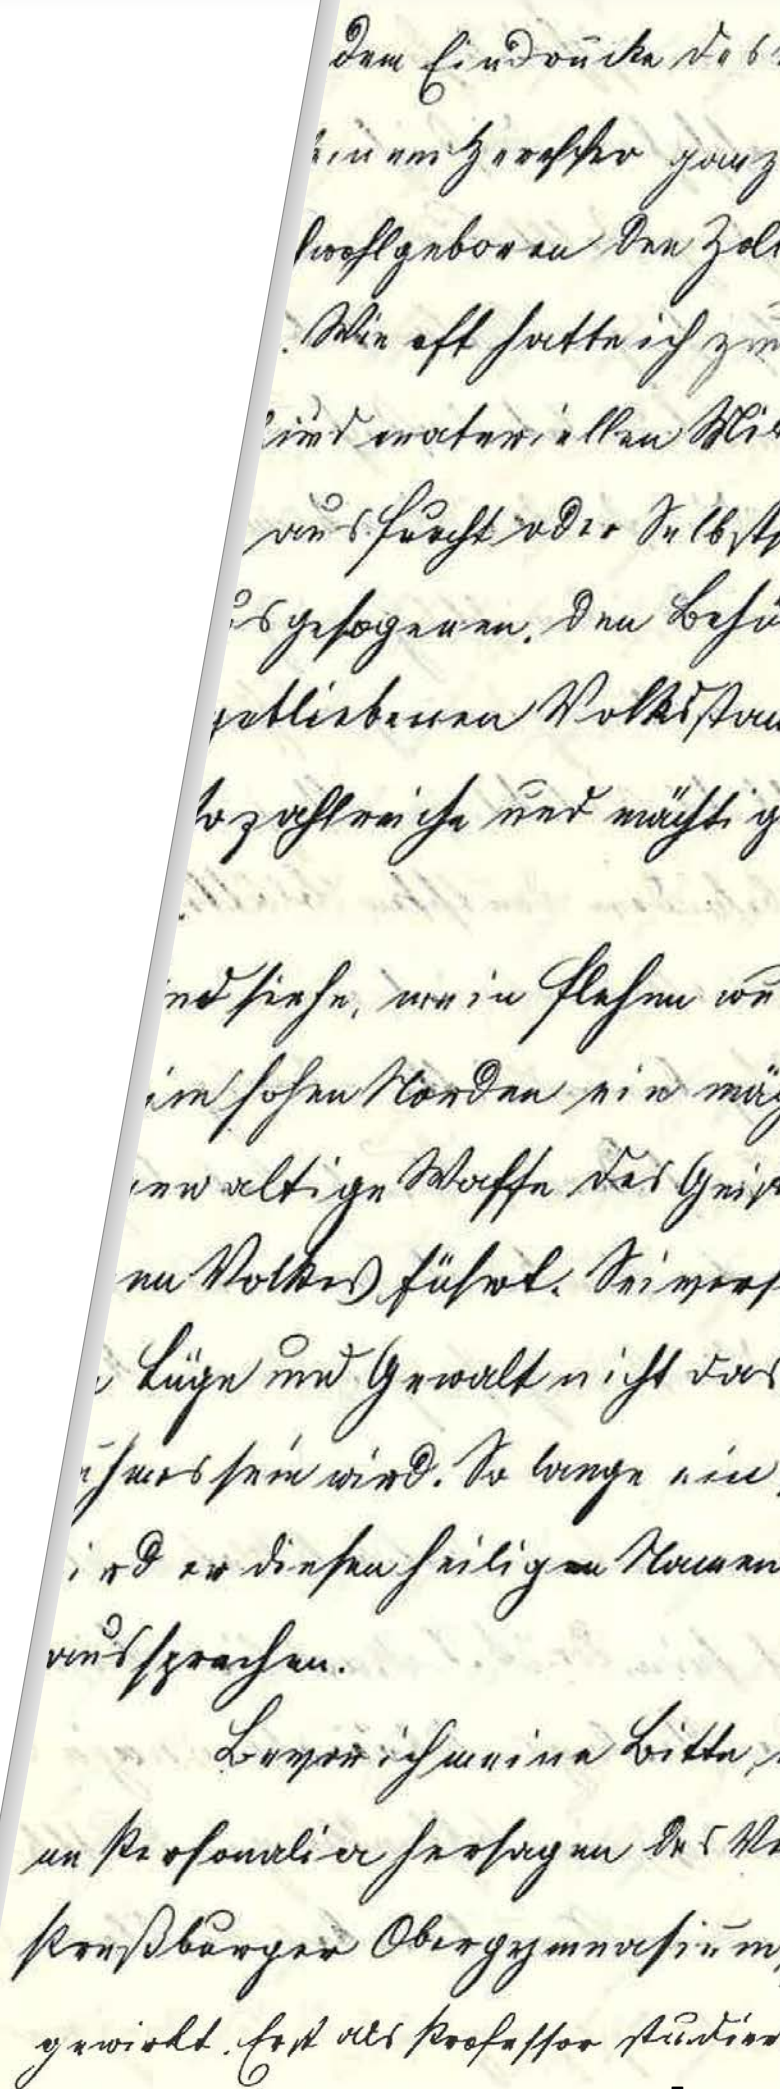 dem Eindrucke des
einem Herrscher ganz
hwohlgeboren den Zoll
. Wie oft hatte ich zu
und materiellen Mit
aus Furcht oder Selbsts
usgesogenen, den Behö
getliebenen Volksstam
so zahlreiche und mächtig
und siehe, mein Flehen wu
im hohen Norden ein mäch
gewaltige Waffe des Geist
en Volkes führt. Sei vers
Lüge und Gewalt nicht das
uhmes sein wird. So lange ein
ird er diesen heiligen Namen
aussprechen.
Bevor ich meine Bitte,
ne Personalia hersagen des Ve
Preßburger Obergymnasium,
gewirkt. Erst als Professor studier